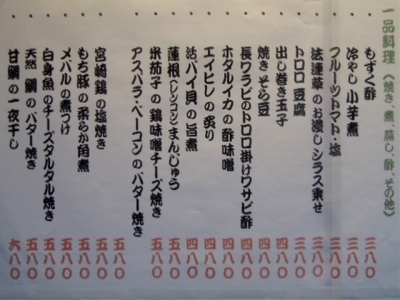 一品料理（焼き、煮、蒸し、酢、その他）
もずく酢 三八〇
冷やし小芋煮 三八〇
フルーツトマト・塩 三八〇
法蓮草のお浸しシラス乗せ 三八〇
トロロ豆腐 三八〇
出し巻き玉子 四八〇
焼きそら豆 四八〇
長ワラビのトロロ掛けワサビ酢 四八〇
ホタルイカの酢味噌 四八〇
エイヒレの炙り 四八〇
沽バイ貝の旨煮 四八〇
蓮根（レンコン）まんじゅう 五八〇
米茄子の鶏味噌チーズ焼き 五八〇
アスパラ・ベーコンのバター焼き
宮崎鶏の塩焼き 五八〇
もち豚の柔らか角煮 五八〇
メバルの煮つけ 五八〇
白身魚のチーズタルタル焼き 五八〇
天然 鯛のバター焼き 五八〇
甘鯛の一夜干し 六八〇